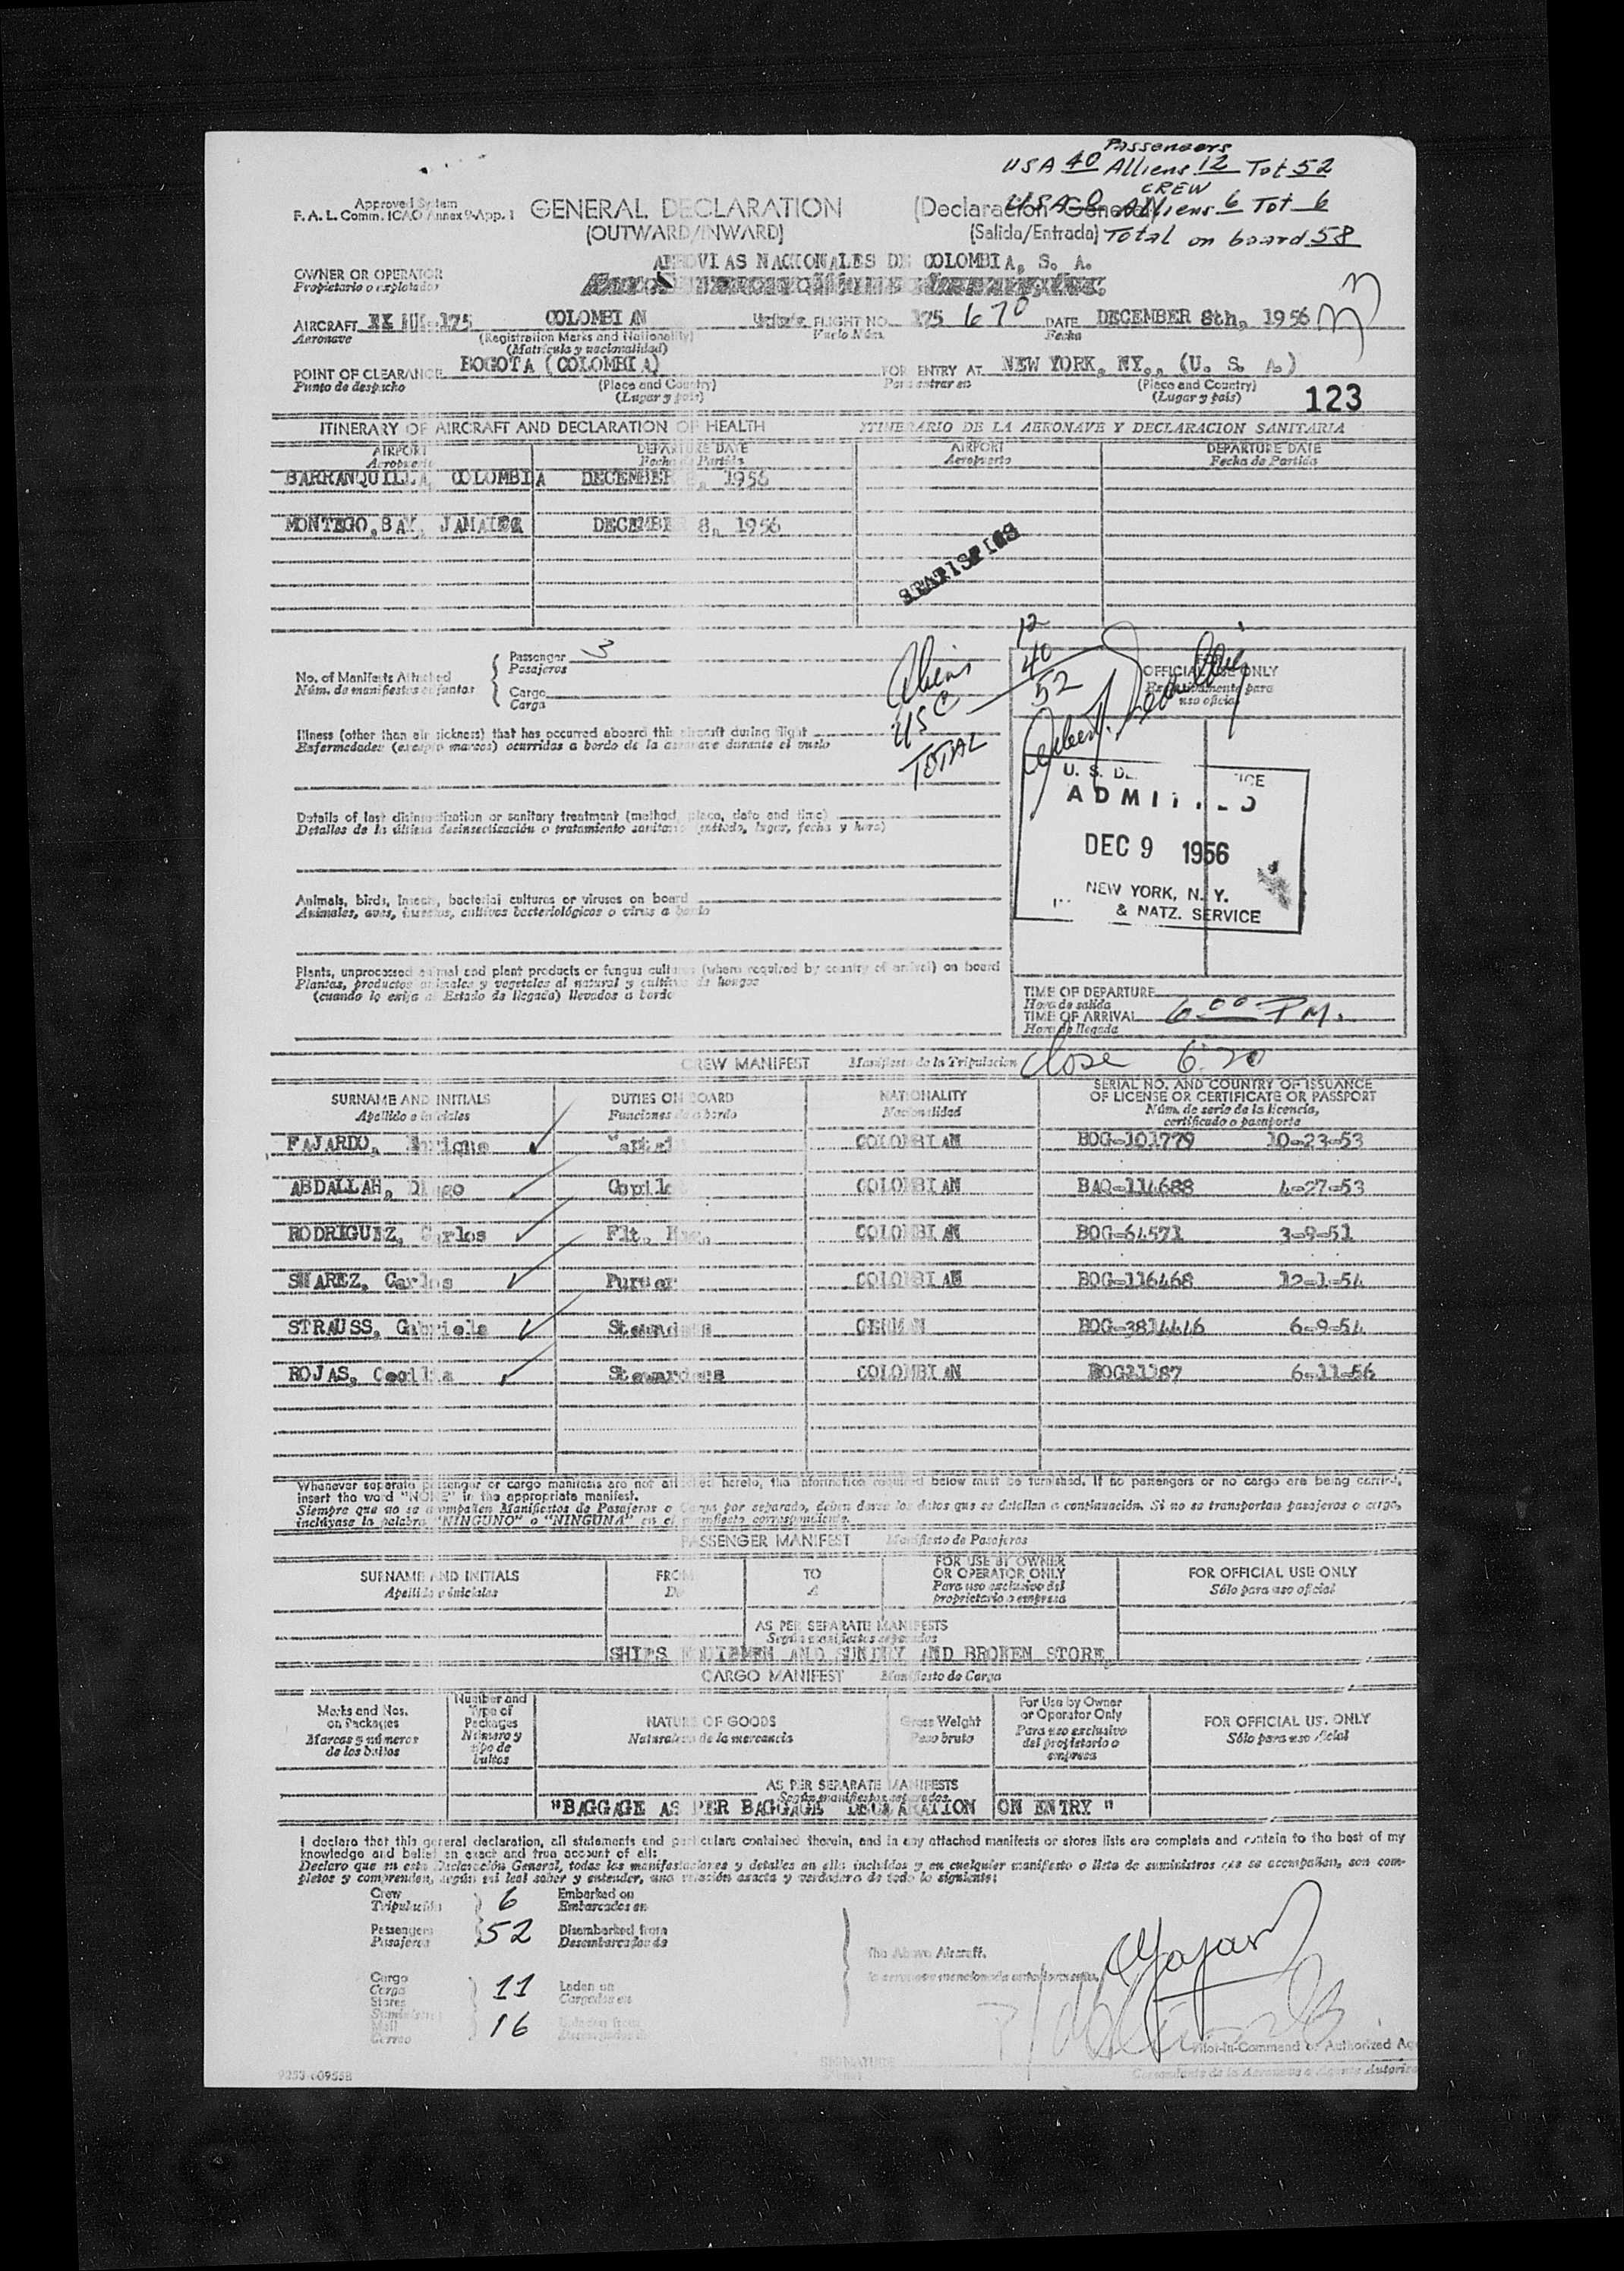 Passengers
USA 40 Alliens 12 Tot 52
CREW
USA 0 Alliens 6 Tot 6
Total on board 58
Approved System
F. A. L. Comm. ICAO Annex 9-App. 1
GENERAL DECLARATION (Declaración General)
(OUTWARD/INWARD) (Salida/Entrada)
AEROVIAS NACIONALES DE COLOMBIA, S. A.
OWNER OR OPERATOR
Propietario o explotador
AIRCRAFT 175 COLOMBIAN FLIGHT NO. 175 670 DATE DECEMBER 8th, 1956
Aeronave (Registration Marks and Nationality) Vuelo Núm. Fecha
(Matrícula y nacionalidad)
POINT OF CLEARANCE BOGOTA (COLOMBIA) FOR ENTRY AT NEW YORK, NY., (U. S. A.)
Punto de despacho (Place and Country) Para entrar en (Place and Country)
(Lugar y país) (Lugar y país)
123
ITINERARY OF AIRCRAFT AND DECLARATION OF HEALTH ITINERARIO DE LA AERONAVE Y DECLARACION SANITARIA
AIRPORT DEPARTURE DATE AIRPORT DEPARTURE DATE
Aeropuerto Fecha de Partida Aeropuerto Fecha de Partida
BARRANQUILLA, COLOMBIA DECEMBER 1956
MONTEGO, BAY, JAMAICA DECEMBER 8, 1956
STATISTICS
No. of Manifests Attached
Núm. de manifiestos adjuntos
Passenger 3
Pasajeros
Cargo
Carga
Aliens 12
USC 40
TOTAL 52
FOR OFFICIAL USE ONLY
Exclusivamente para
uso oficial
Illness (other than air sickness) that has occurred aboard this aircraft during flight
Enfermedades (excepto mareos) ocurridas a bordo de la aeronave durante el vuelo
Details of last disinsectization or sanitary treatment (method, place, date and time)
Detalles de la última desinsectización o tratamiento sanitario (método, lugar, fecha y hora)
Animals, birds, insects, bacterial cultures or viruses on board
Animales, aves, insectos, cultivos bacteriológicos o virus a bordo
Plants, unprocessed animal and plant products or fungus cultures (where required by country of arrival) on board
Plantas, productos animales y vegetales al natural y cultivos de hongos
(cuando lo exija el Estado de llegada) llevados a bordo
U. S. D
ADMITTED
DEC 9 1956
NEW YORK, N. Y.
& NATZ. SERVICE
TIME OF DEPARTURE
Hora de salida
TIME OF ARRIVAL 6 00 P.M.
Hora de llegada
Close 6:20
CREW MANIFEST Manifiesto de la Tripulacion
SURNAME AND INITIALS DUTIES ON BOARD NATIONALITY SERIAL NO. AND COUNTRY OF ISSUANCE
OF LICENSE OR CERTIFICATE OR PASSPORT
Apellido e iniciales Funciones de a bordo Nacionalidad Núm. de serie de la licencia,
certificado o pasaporte
FAJARDO, Enrique Captain COLOMBIAN BOG-101779 10-23-53
ABDALLAH, Diego Copilot COLOMBIAN BAQ-114688 4-27-53
RODRIGUEZ, Carlos Flt. COLOMBIAN BOG-64571 3-9-51
SUAREZ, Carlos Purser COLOMBIAN BOG-116468 12-1-54
STRAUSS, Gabriele Stewardess GERMAN BOG-3814446 6-9-54
ROJAS, Cecilia Stewardess COLOMBIAN BOG21187 6-11-56
Whenever separate passenger or cargo manifests are not attached hereto, the information required below must be furnished. If no passengers or no cargo are being carried,
insert the word "NONE" in the appropriate manifest.
Siempre que no se acompañen Manifiestos de Pasajeros o Carga por separado, deben darse los datos que se detallan a continuación. Si no se transportan pasajeros o carga,
inclúyase la palabra "NINGUNO" o "NINGUNA" en el manifiesto correspondiente.
PASSENGER MANIFEST Manifiesto de Pasajeros
SURNAME AND INITIALS FROM TO FOR USE BY OWNER
OR OPERATOR ONLY FOR OFFICIAL USE ONLY
Apellido e iniciales De A Para uso exclusivo del
propietario o empresa Sólo para uso oficial
AS PER SEPARATE MANIFESTS
Según manifiestos separados
SHIPS EQUIPMEN AND SUNDRY AND BROKEN STORE,
CARGO MANIFEST Manifiesto de Carga
Marks and Nos.
on Packages
Marcas y números
de los bultos
Number and
Type of
Packages
Número y
tipo de
bultos
NATURE OF GOODS
Naturaleza de la mercancía
Gross Weight
Peso bruto
For Use by Owner
or Operator Only
Para uso exclusivo
del propietario o
empresa
FOR OFFICIAL USE ONLY
Sólo para uso oficial
AS PER SEPARATE MANIFESTS
Según manifiestos separados
"BAGGAGE AS PER BAGGAGE DECLARATION ON ENTRY "
I declare that this general declaration, all statements and particulars contained therein, and in any attached manifests or stores lists are complete and contain to the best of my
knowledge and belief an exact and true account of all:
Declaro que en esta Declaración General, todas las manifestaciones y detalles en ella incluidos y en cualquier manifiesto o lista de suministros que se acompañen, son com-
pletos y comprenden, según mi leal saber y entender, una relación exacta y verdadera de todo lo siguiente:
Crew 6 Embarked on
Tripulación Embarcados en
Passengers 52 Disembarked from
Pasajeros Desembarcados de
The Above Aircraft.
la aeronave mencionada anteriormente.
Cargo 11 Laden on
Carga Cargados en
Stores
Suministros
Mail 16
Correo
Pilot-in-Command or Authorized Ag
SIGNATURE
Comandante de la Aeronave o Agente Autoriza